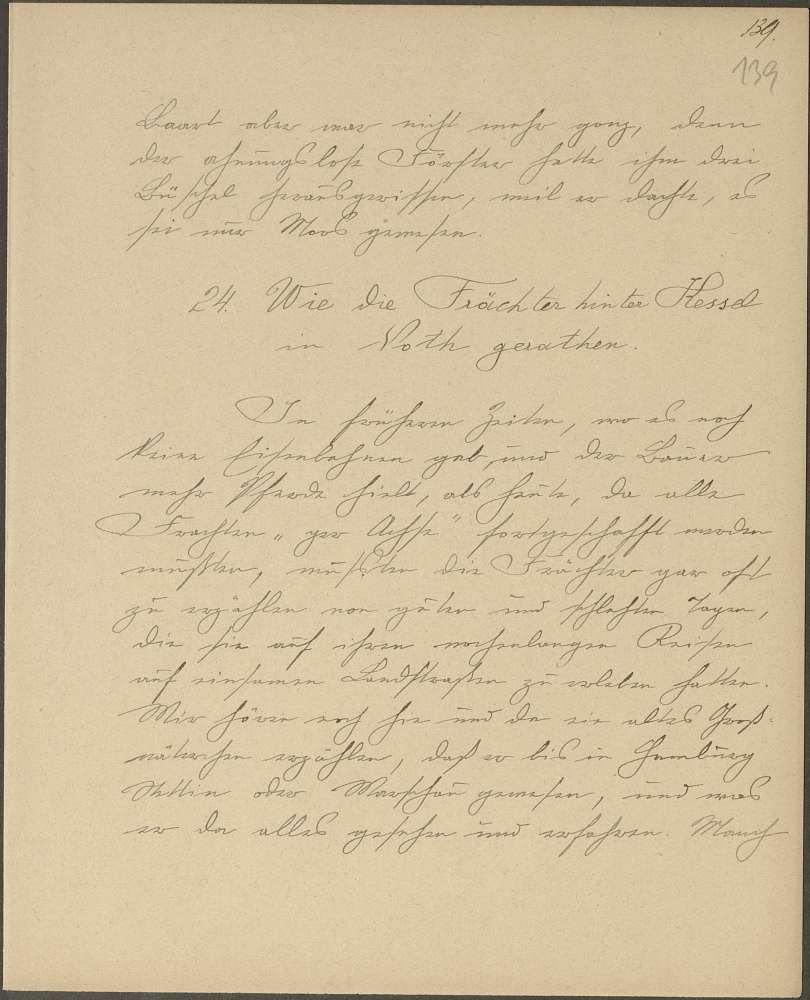 139.
139
Baart aber war nicht mehr ganz, denn
der ahnungslose Förster hatte ihm drei
Büschel herausgerissen, weil er dachte, es
sei nur Moos gewesen.
24. Wie die Frächter hinter Kessel
in Noth gerathen.
In früheren Zeiten, wo es noch
keine Eisenbahnen gab, und der Bauer
mehr Pferde hielt, als heute, da alle
Frachten „per Achse" fortgeschafft werden
mußten, wußten die Frächter gar oft
zu erzählen von guten und schlechten Tagen,
die sie auf ihren wochenlangen Reisen
auf einsamen Landstraßen zu erleben hatten.
Wir hören noch hie und da ein altes Groß-
väterchen erzählen, daß er bis in Hamburg
Stettin oder Warschau gewesen, und was
er da alles gesehen und erfahren. Manch